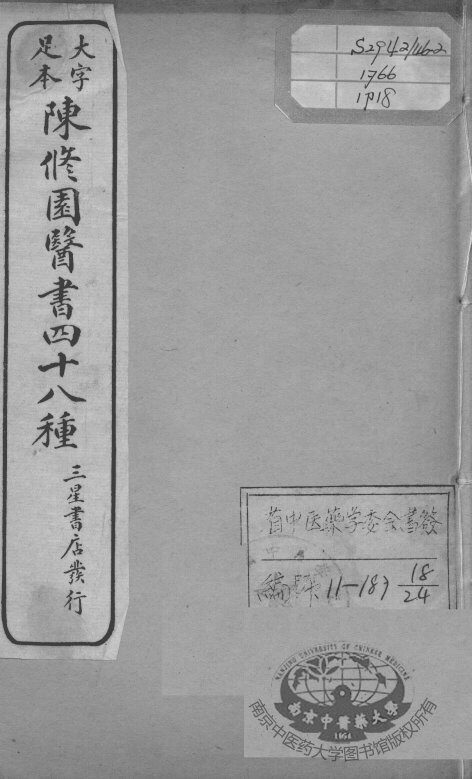 大字
足本
陳修園醫書四十八種
三星書店發行
S2942/46-2
1766
1718
省中医藥学委会書籤
編號 11-183 18/24
NANJING UNIVERSITY OF CHINESE MEDICINE
南京中醫藥大學
1954
南京中医药大学图书馆版权所有